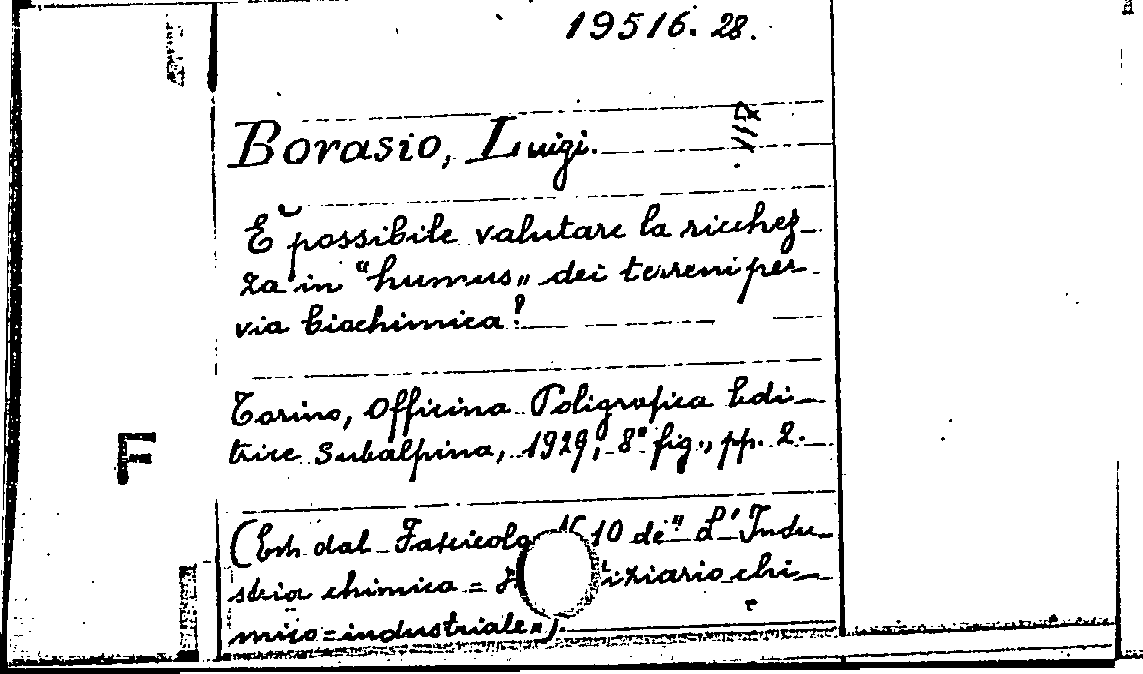 19516. 28.
Borasio, Luigi.
È possibile valutare la ricchez-
za in "humus" dei terreni per
via biochimica?
Torino, Officina Poligrafica Edi-
trice Subalpina, 1929, 8° fig., pp. 2.
(Estr. dal Fascicolo 10 de "L'Indu-
stria chimica = chi-
mico=industriale").
F